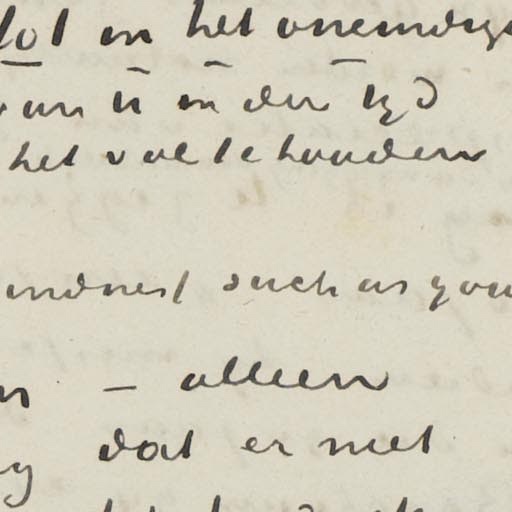 tot in het oneindige
van U in den tyd
het vol te houden
kindness / such as you
– alleen
dat er niet